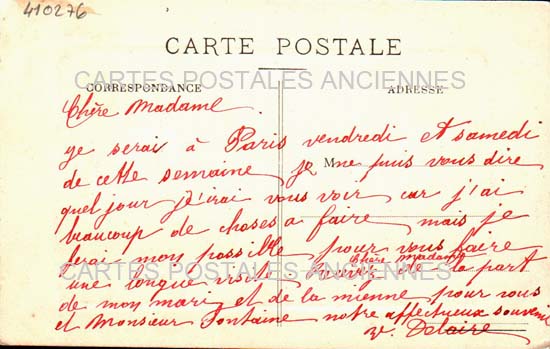 410276
CARTE POSTALE
CARTES POSTALES ANCIENNES
CORRESPONDANCE
ADRESSE
Chère Madame
je serai à Paris vendredi et samedi
de cette semaine je ne puis vous dire
M
quel jour j'irai vous voir car j'ai
beaucoup de choses a faire mais je
ferai mon possible pour vous faire
une longue visite recevez chère Madame de la part
CARTES POSTALES ANCIENNES
de mon mari et de la mienne pour vous
et Monsieur Fontaine notre affectueux souvenir
v. Delaire